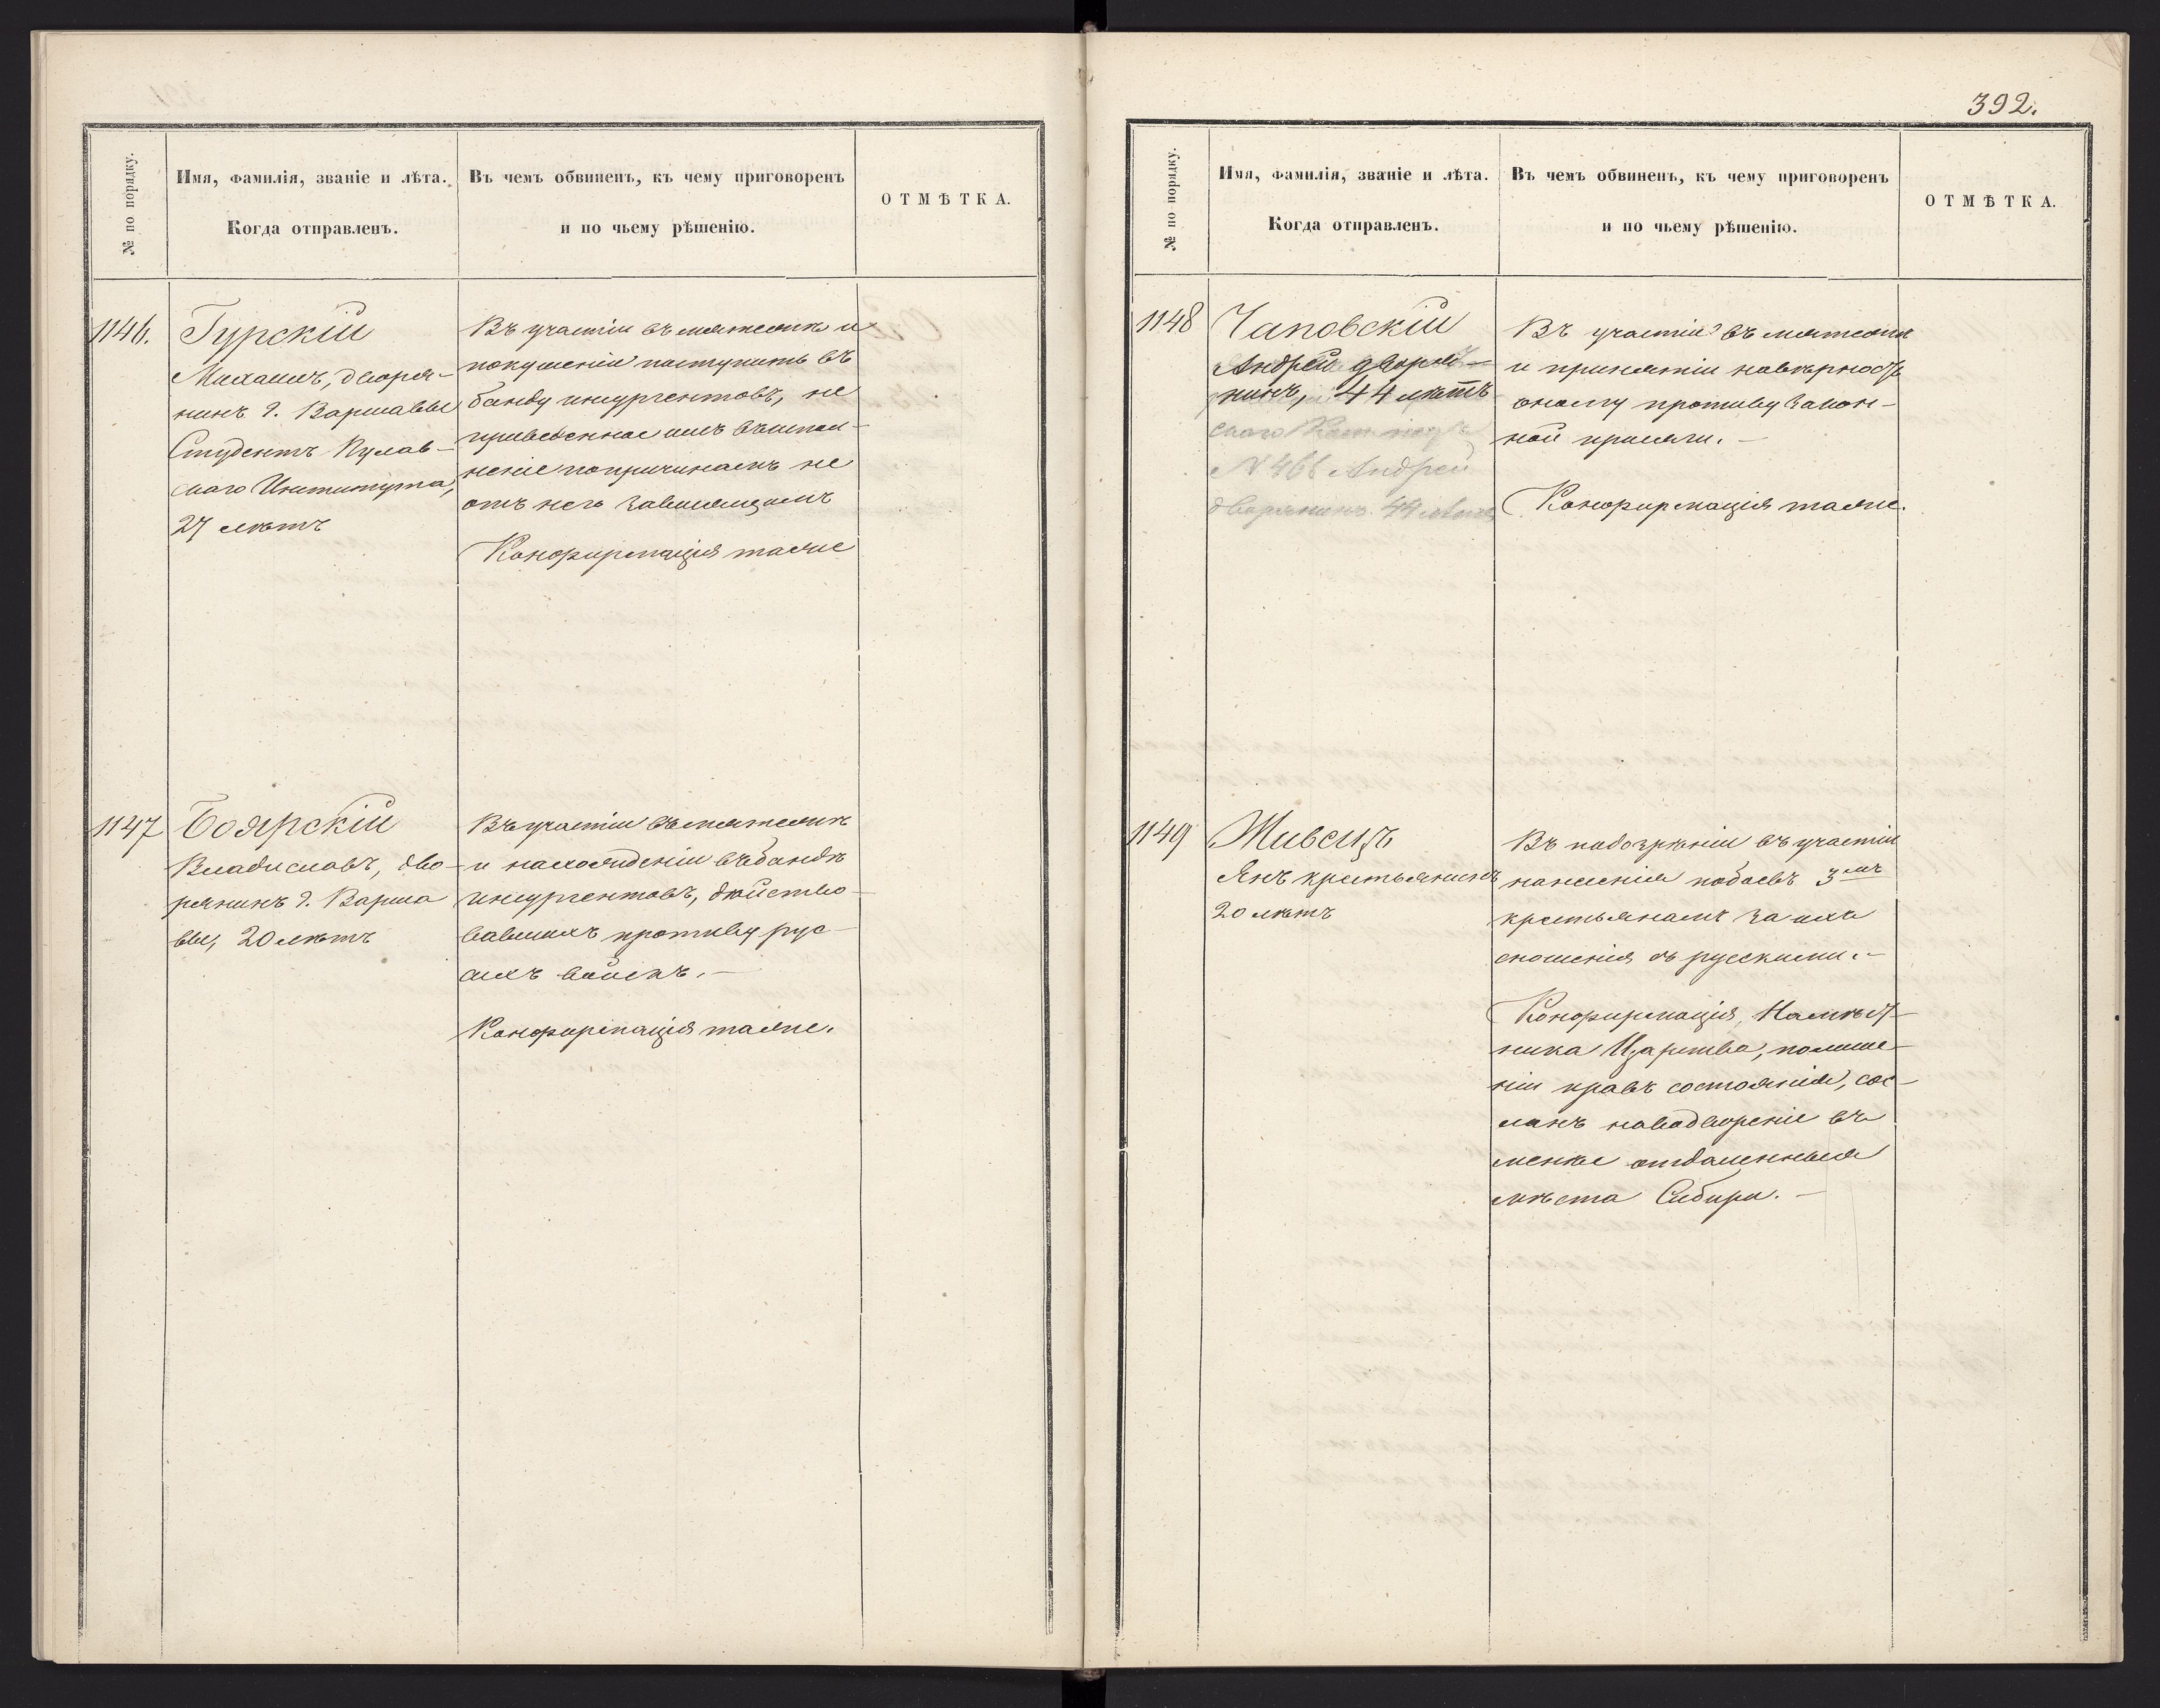 392.
№ по порядку.
Имя, фамилія, званіе и лѣта.
Когда отправленъ.
Въ чемъ обвиненъ, къ чему приговоренъ
и по чьему рѣшенію.
ОТМѢТКА.
1146.
Гурскій
Михаилъ, дворя-
нинъ г. Варшавы
Студентъ Пулав-
скаго Института,
27 лѣтъ
Въ участіи въ мятежѣ и
покушеніи поступить въ
банду инсургентовъ, не
приведенное имъ въ испол-
неніе по причинамъ не
отъ него зависящимъ
Конфирмація таже
1147
Боярскій
Владиславъ, дво-
рянинъ г. Варша
вы, 20 лѣтъ
Въ участіи въ мятежѣ
и нахожденіи въ бандѣ
инсургентовъ, дѣйство-
вавшихъ противу рус-
кихъ войскъ. —
Конфирмація таже.
№ по порядку.
Имя, фамилія, званіе и лѣта.
Когда отправленъ.
Въ чемъ обвиненъ, къ чему приговоренъ
и по чьему рѣшенію.
ОТМѢТКА.
1148
Чаповскій
Андрей дворя-
нинъ, 44 лѣтъ
скаго
№ 466 Андрей
дворянинъ 44 лѣтъ
Въ участіи въ мятежѣ
и принятіи на вѣрность
оному противузакон-
ной присяги. —
Конфирмація таже.
1149
Живецъ
Янъ крестьянинъ
20 лѣтъ
Въ подозрѣніи въ участіи
нанесенія побоевъ 3мъ
крестьянамъ за ихъ
сношенія съ русскими. —
Конфирмація, Намѣст-
ника Царства, по лише-
ніи правъ состоянія, сос-
ланъ на водвореніе въ
менѣе отдаленныя
мѣста Сибири. —